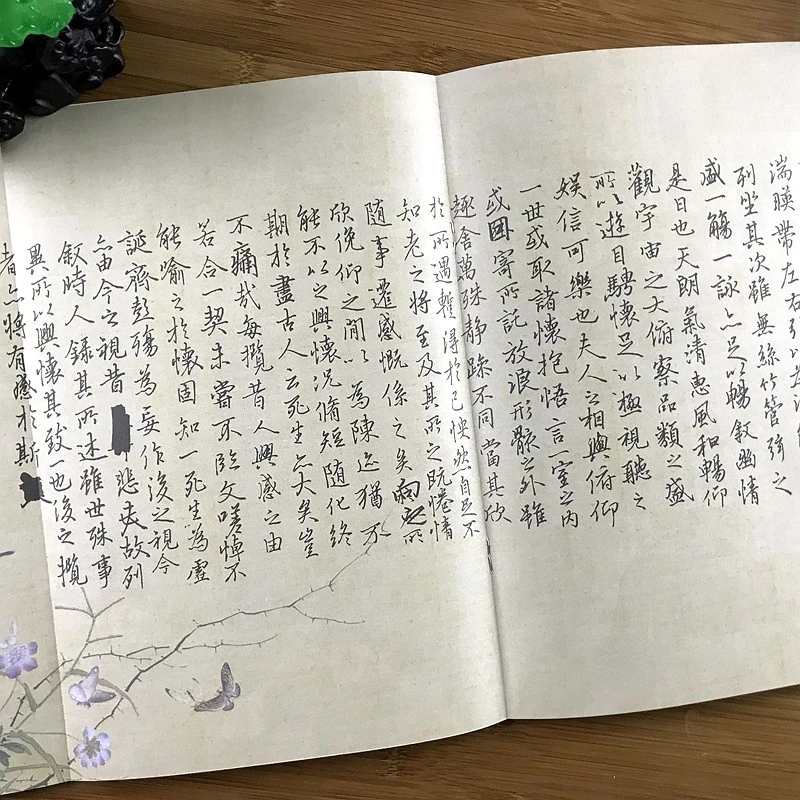 湍暎帶左右引以為
列坐其次雖無絲竹管弦之
盛一觴一詠亦足以暢敘幽情
是日也天朗氣清惠風和暢仰
觀宇宙之大俯察品類之盛
所以遊目騁懷足以極視聽之
娛信可樂也夫人之相與俯仰
一世或取諸懷抱悟言一室之內
或因寄所託放浪形骸之外雖
趣舍萬殊靜躁不同當其欣
於所遇暫得於己怏然自足不
知老之將至及其所之既惓情
隨事遷感慨係之矣向之所
欣俛仰之間以為陳迹猶不
能不以之興懷況脩短隨化終
期於盡古人云死生亦大矣豈
不痛哉每攬昔人興感之由
若合一契未嘗不臨文嗟悼不
能喻之於懷固知一死生為虛
誕齊彭殤為妄作後之視今
亦由今之視昔悲夫故列
敘時人錄其所述雖世殊事
異所以興懷其致一也後之攬
者亦將有感於斯